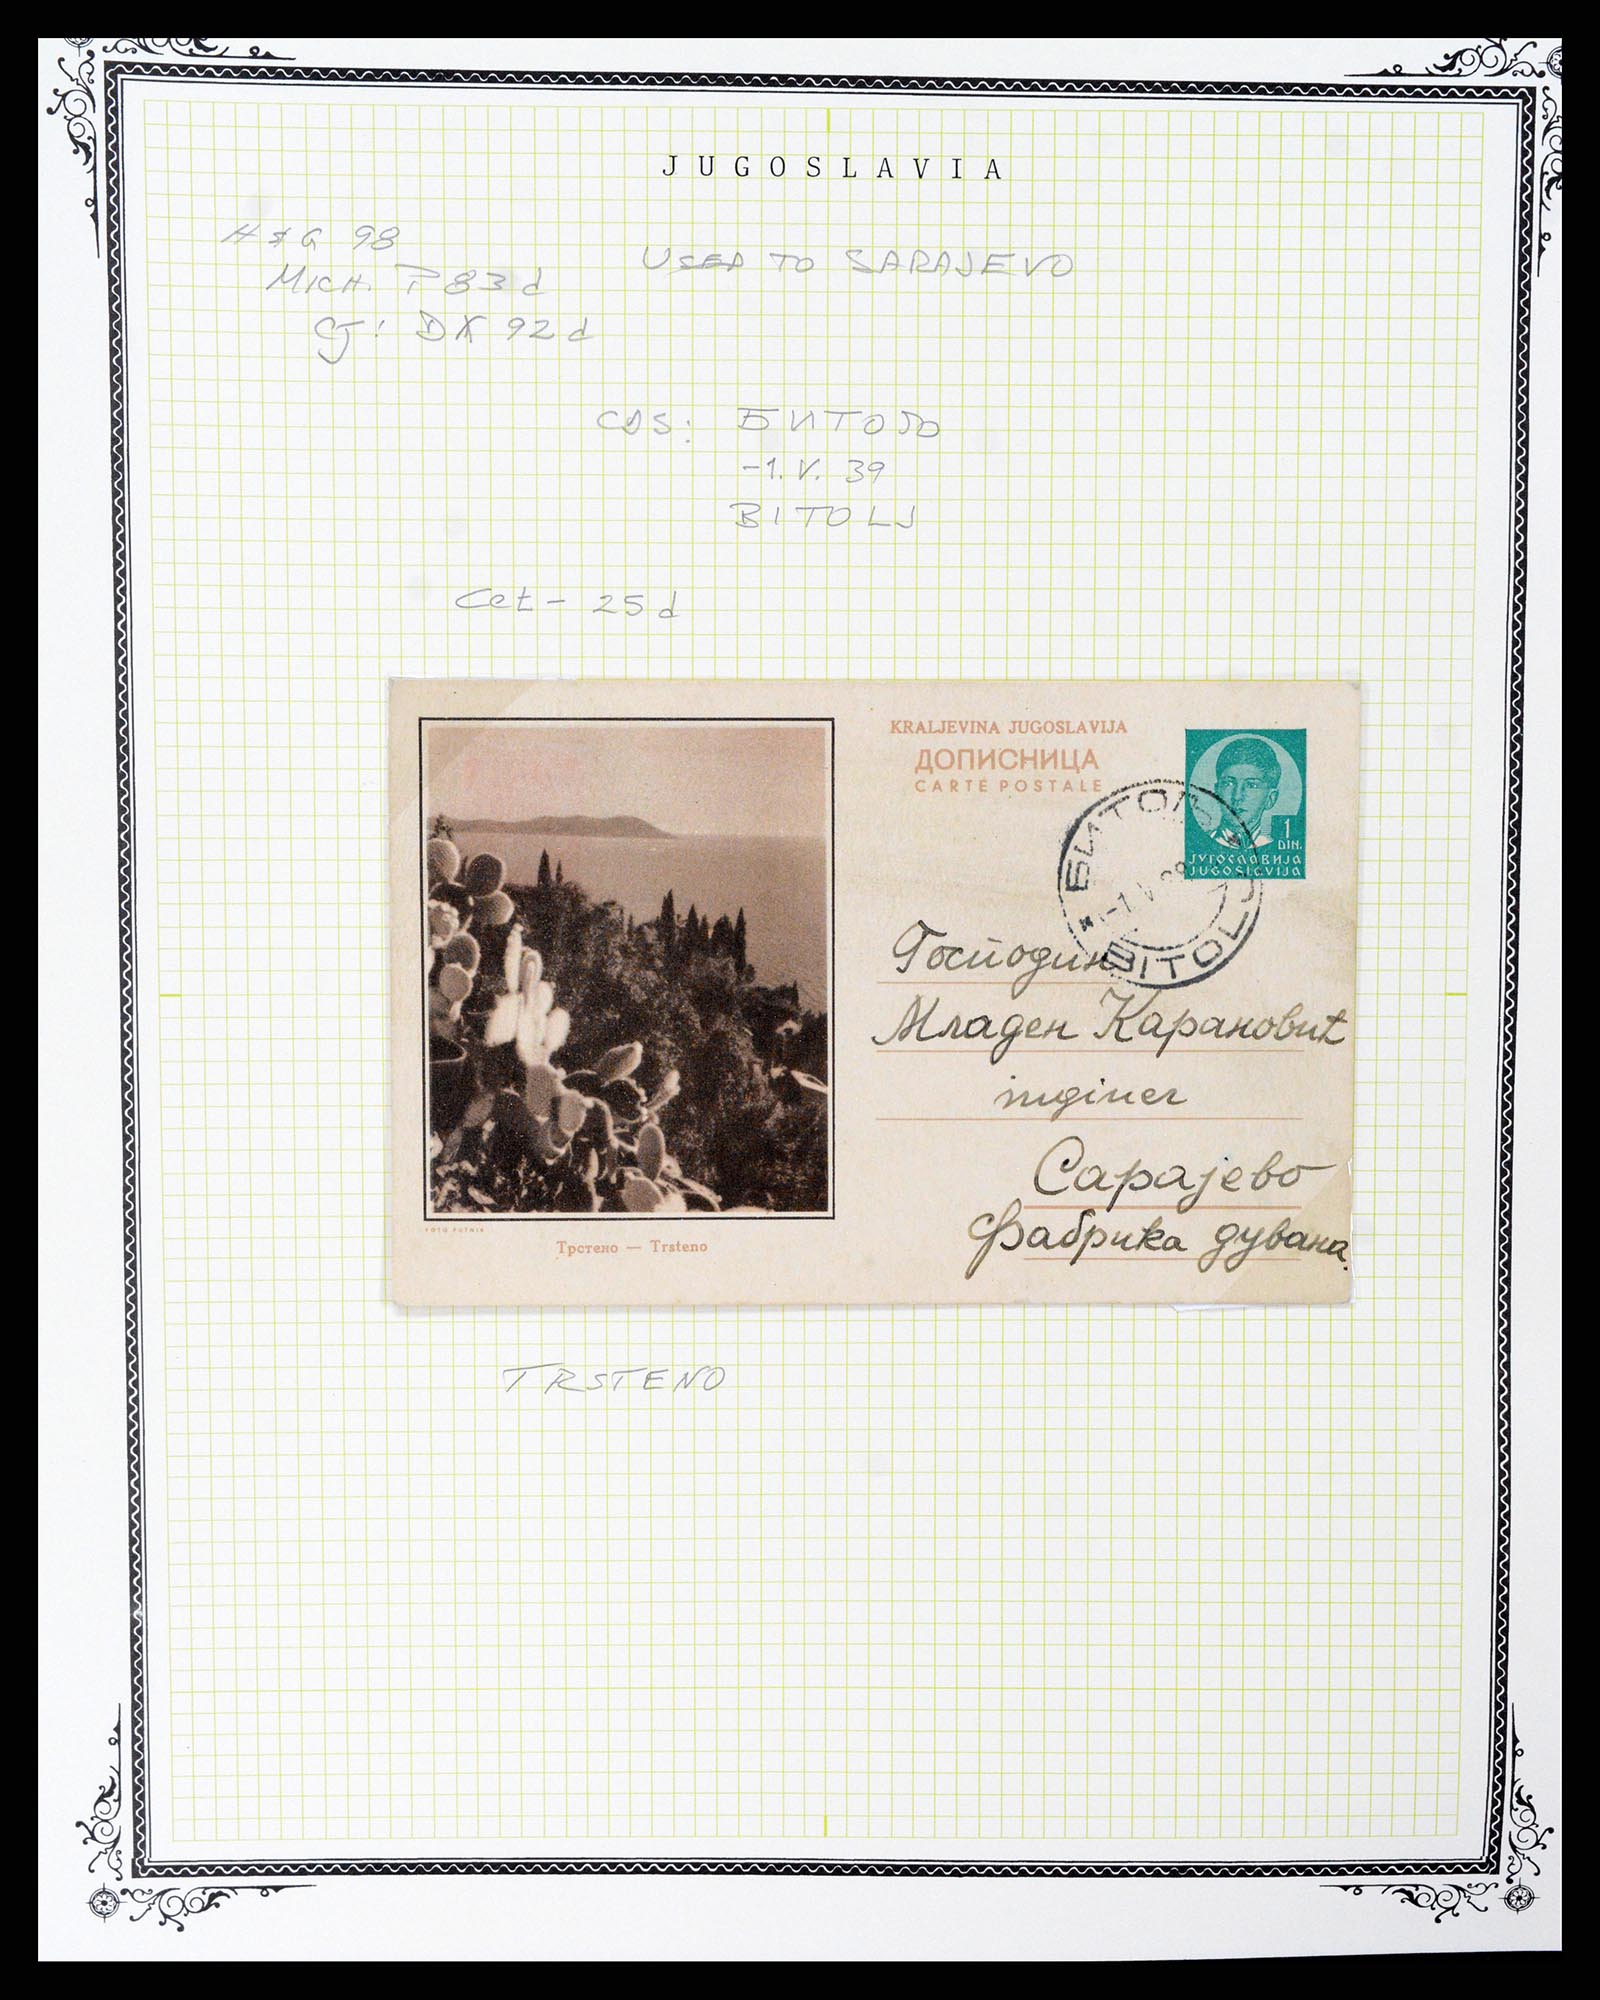 JUGOSLAVIA
H & G 98
MICH. P 83 d
USED TO SARAJEVO
CJ: DX 92 d
CDS: БИТОЉ
-1. V. 39
BITOLJ
Cet - 25 d
KRALJEVINA JUGOSLAVIJA
ДОПИСНИЦА
CARTE POSTALE
1
DIN.
ЈУГОСЛАВИЈА
JUGOSLAVIJA
БИТОЉ
-1 V 39
BITOLJ
Господин
Младен Карановић
inginer
Сарајево
Фабрика дувана.
FOTO PUTNIK
Трстено — Trsteno
TRSTENO